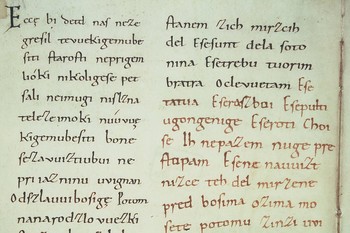 Eccę bi detd naſ neze
greſil tevuekigemube
ſiti ſtaroſti neprigem
lióki nikoligeſe pet
ſali neimugi niſlzna
telezeimoki núúvúęz
kigemubeſiti bone
ſezavuiztiubui ne
priiazninu uvignan
Odſzlauuiboſigę Potom
nanarodzlovuezki
ſtanem zich mirzcih
del Eſeſunt dela ſoto
nina Eſetrebu tuorim
bratra Oclevuetam Eſe
tatua Eſeraſboi Eſepulti
ugongenige Eſeroti Choi
ſe Ih nepazem nuge pre
ſtopam Eſene nauuizt
nizce teh del mirzene
pred boſima ozima mo
ſete potomu zinzi uvi